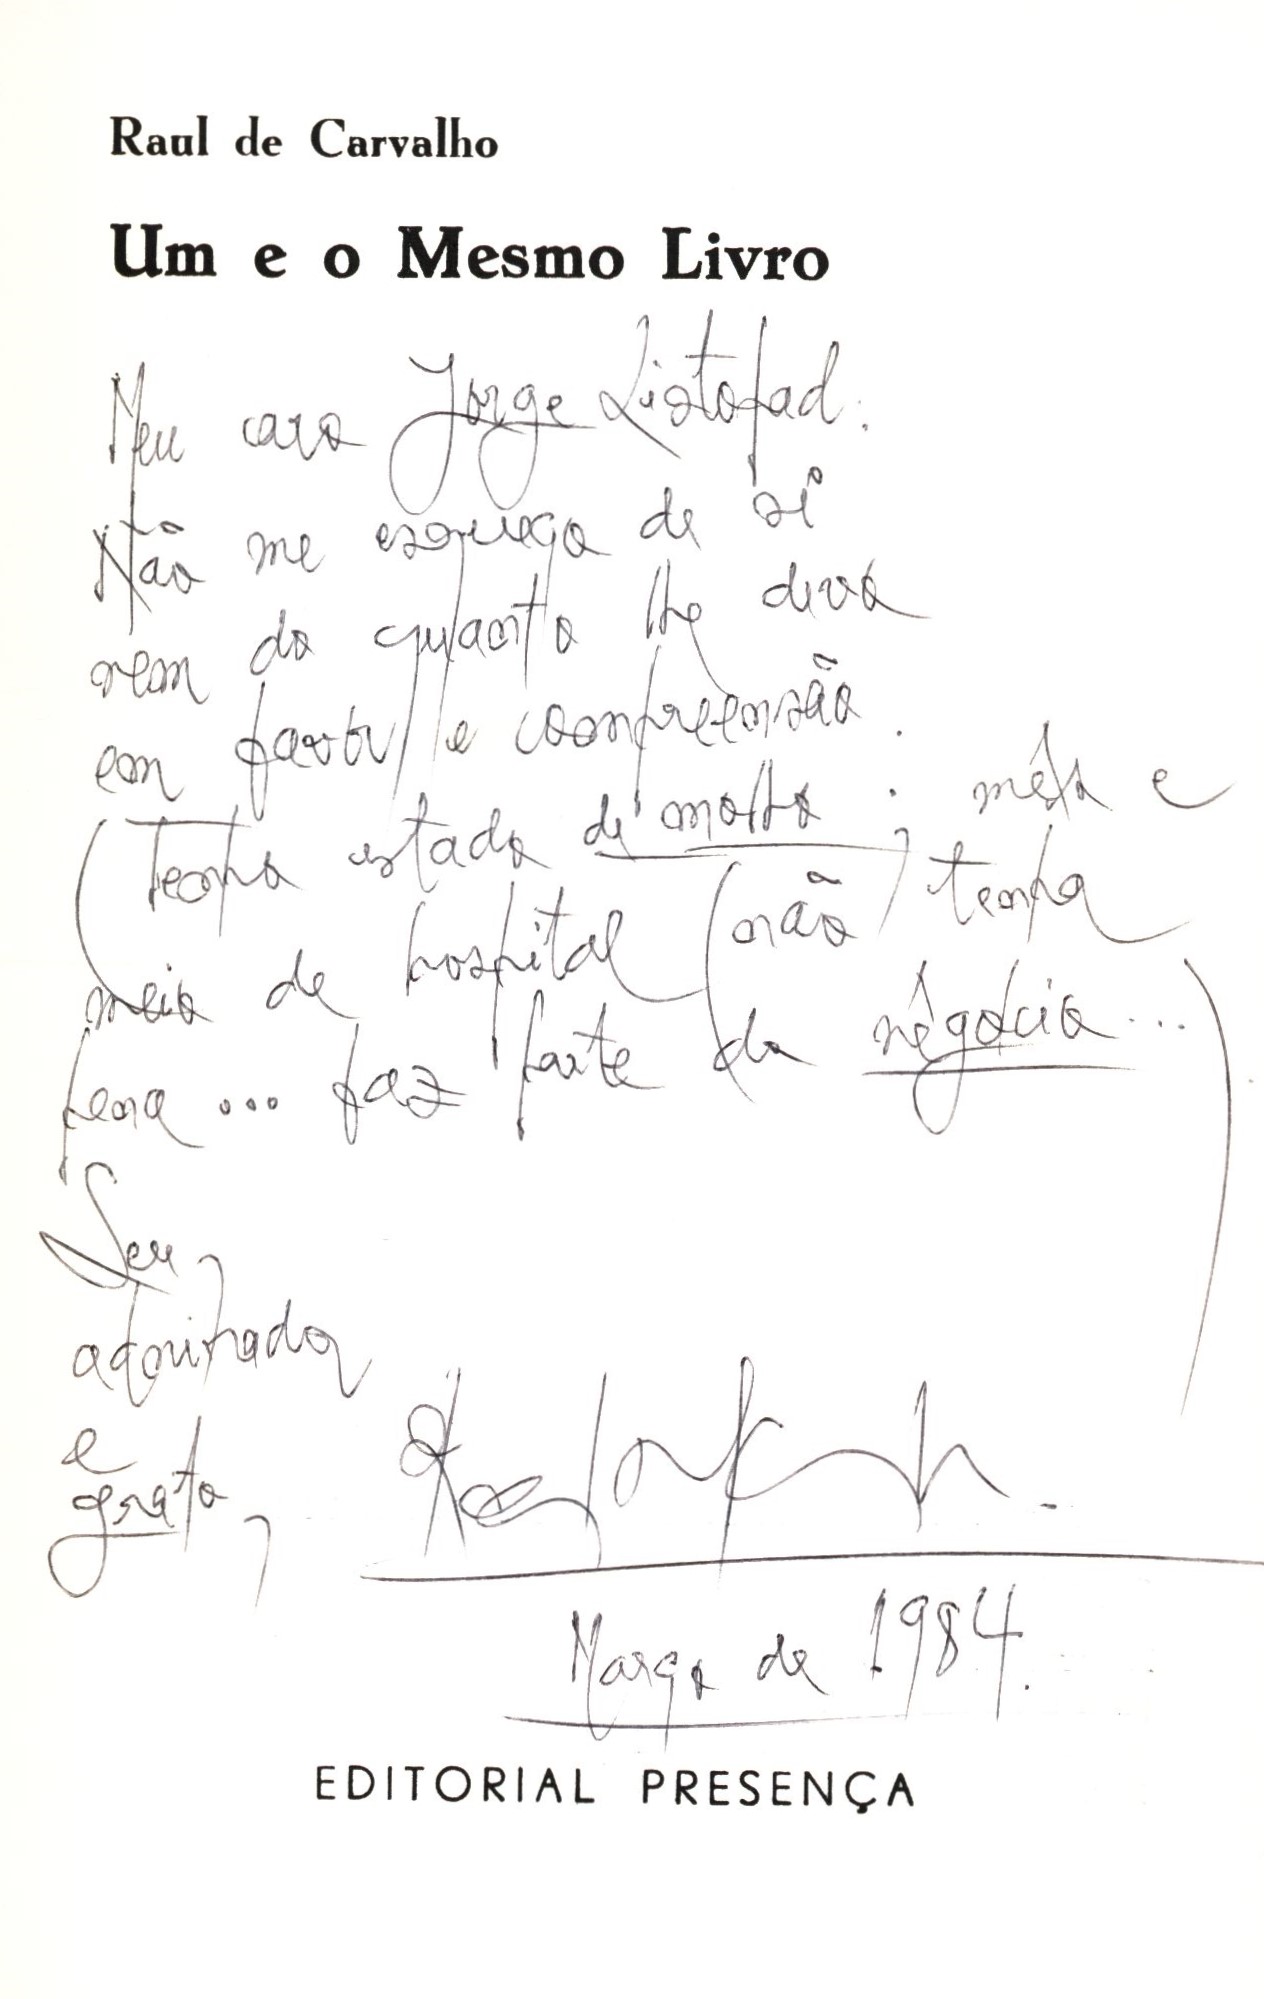 Raul de Carvalho
Um e o Mesmo Livro
Meu caro Jorge Listopad:
Não me esqueço de si
nem do quanto lhe devo
em e compreensão.
(Tenho estado de molho: mês e
meio de hospital (não) tenha
pena... faz parte do negócio...)
Seu
admirador
e
grato,
Março de 1984.
EDITORIAL PRESENÇA